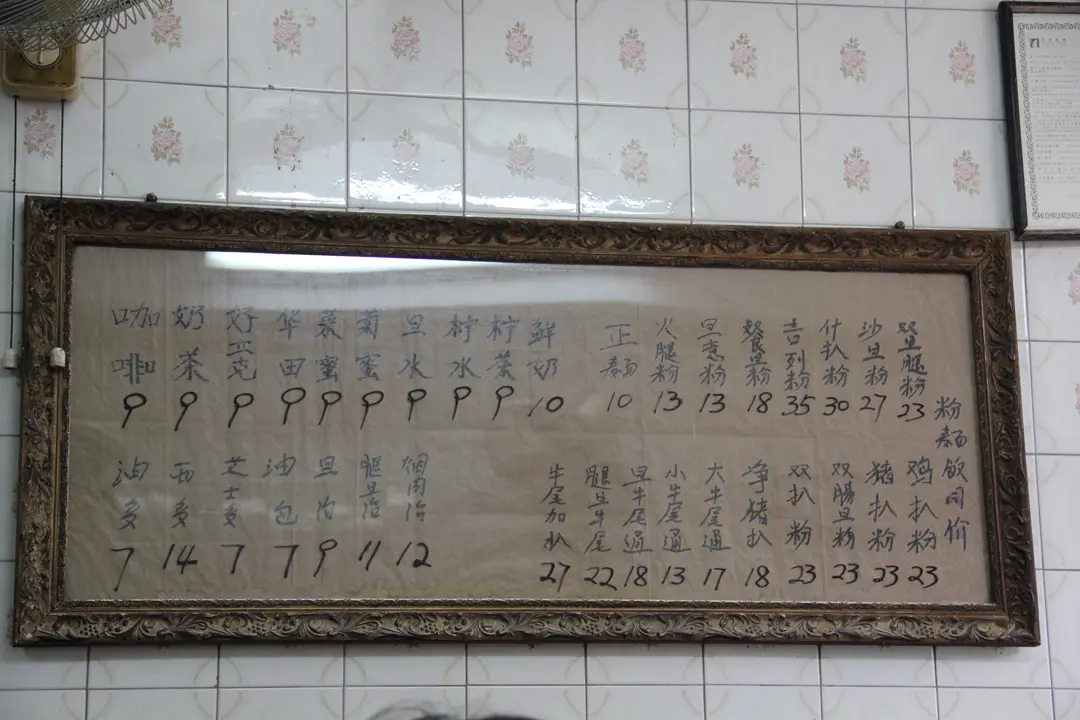 粉麵飯同价
双旦腿粉 23
沙旦粉 27
什扒粉 30
吉列粉 35
旦粉 18
旦煮粉 13
火腿粉 13
正麵 10
鲜奶 10
柠茶 9
柠水 9
旦水 9
菊蜜 9
菜蜜 9
华田 9
好立克 9
奶茶 9
咖啡 9
鸡扒粉 23
猪扒粉 23
双腸旦粉 23
双扒粉 23
净猪扒 18
大牛尾通 17
小牛尾通 13
旦牛尾通 18
腿旦牛尾 22
牛尾加扒 27
烟肉治 12
腿旦治 11
旦治 9
油包 7
芝士多 7
西多 14
油多 7